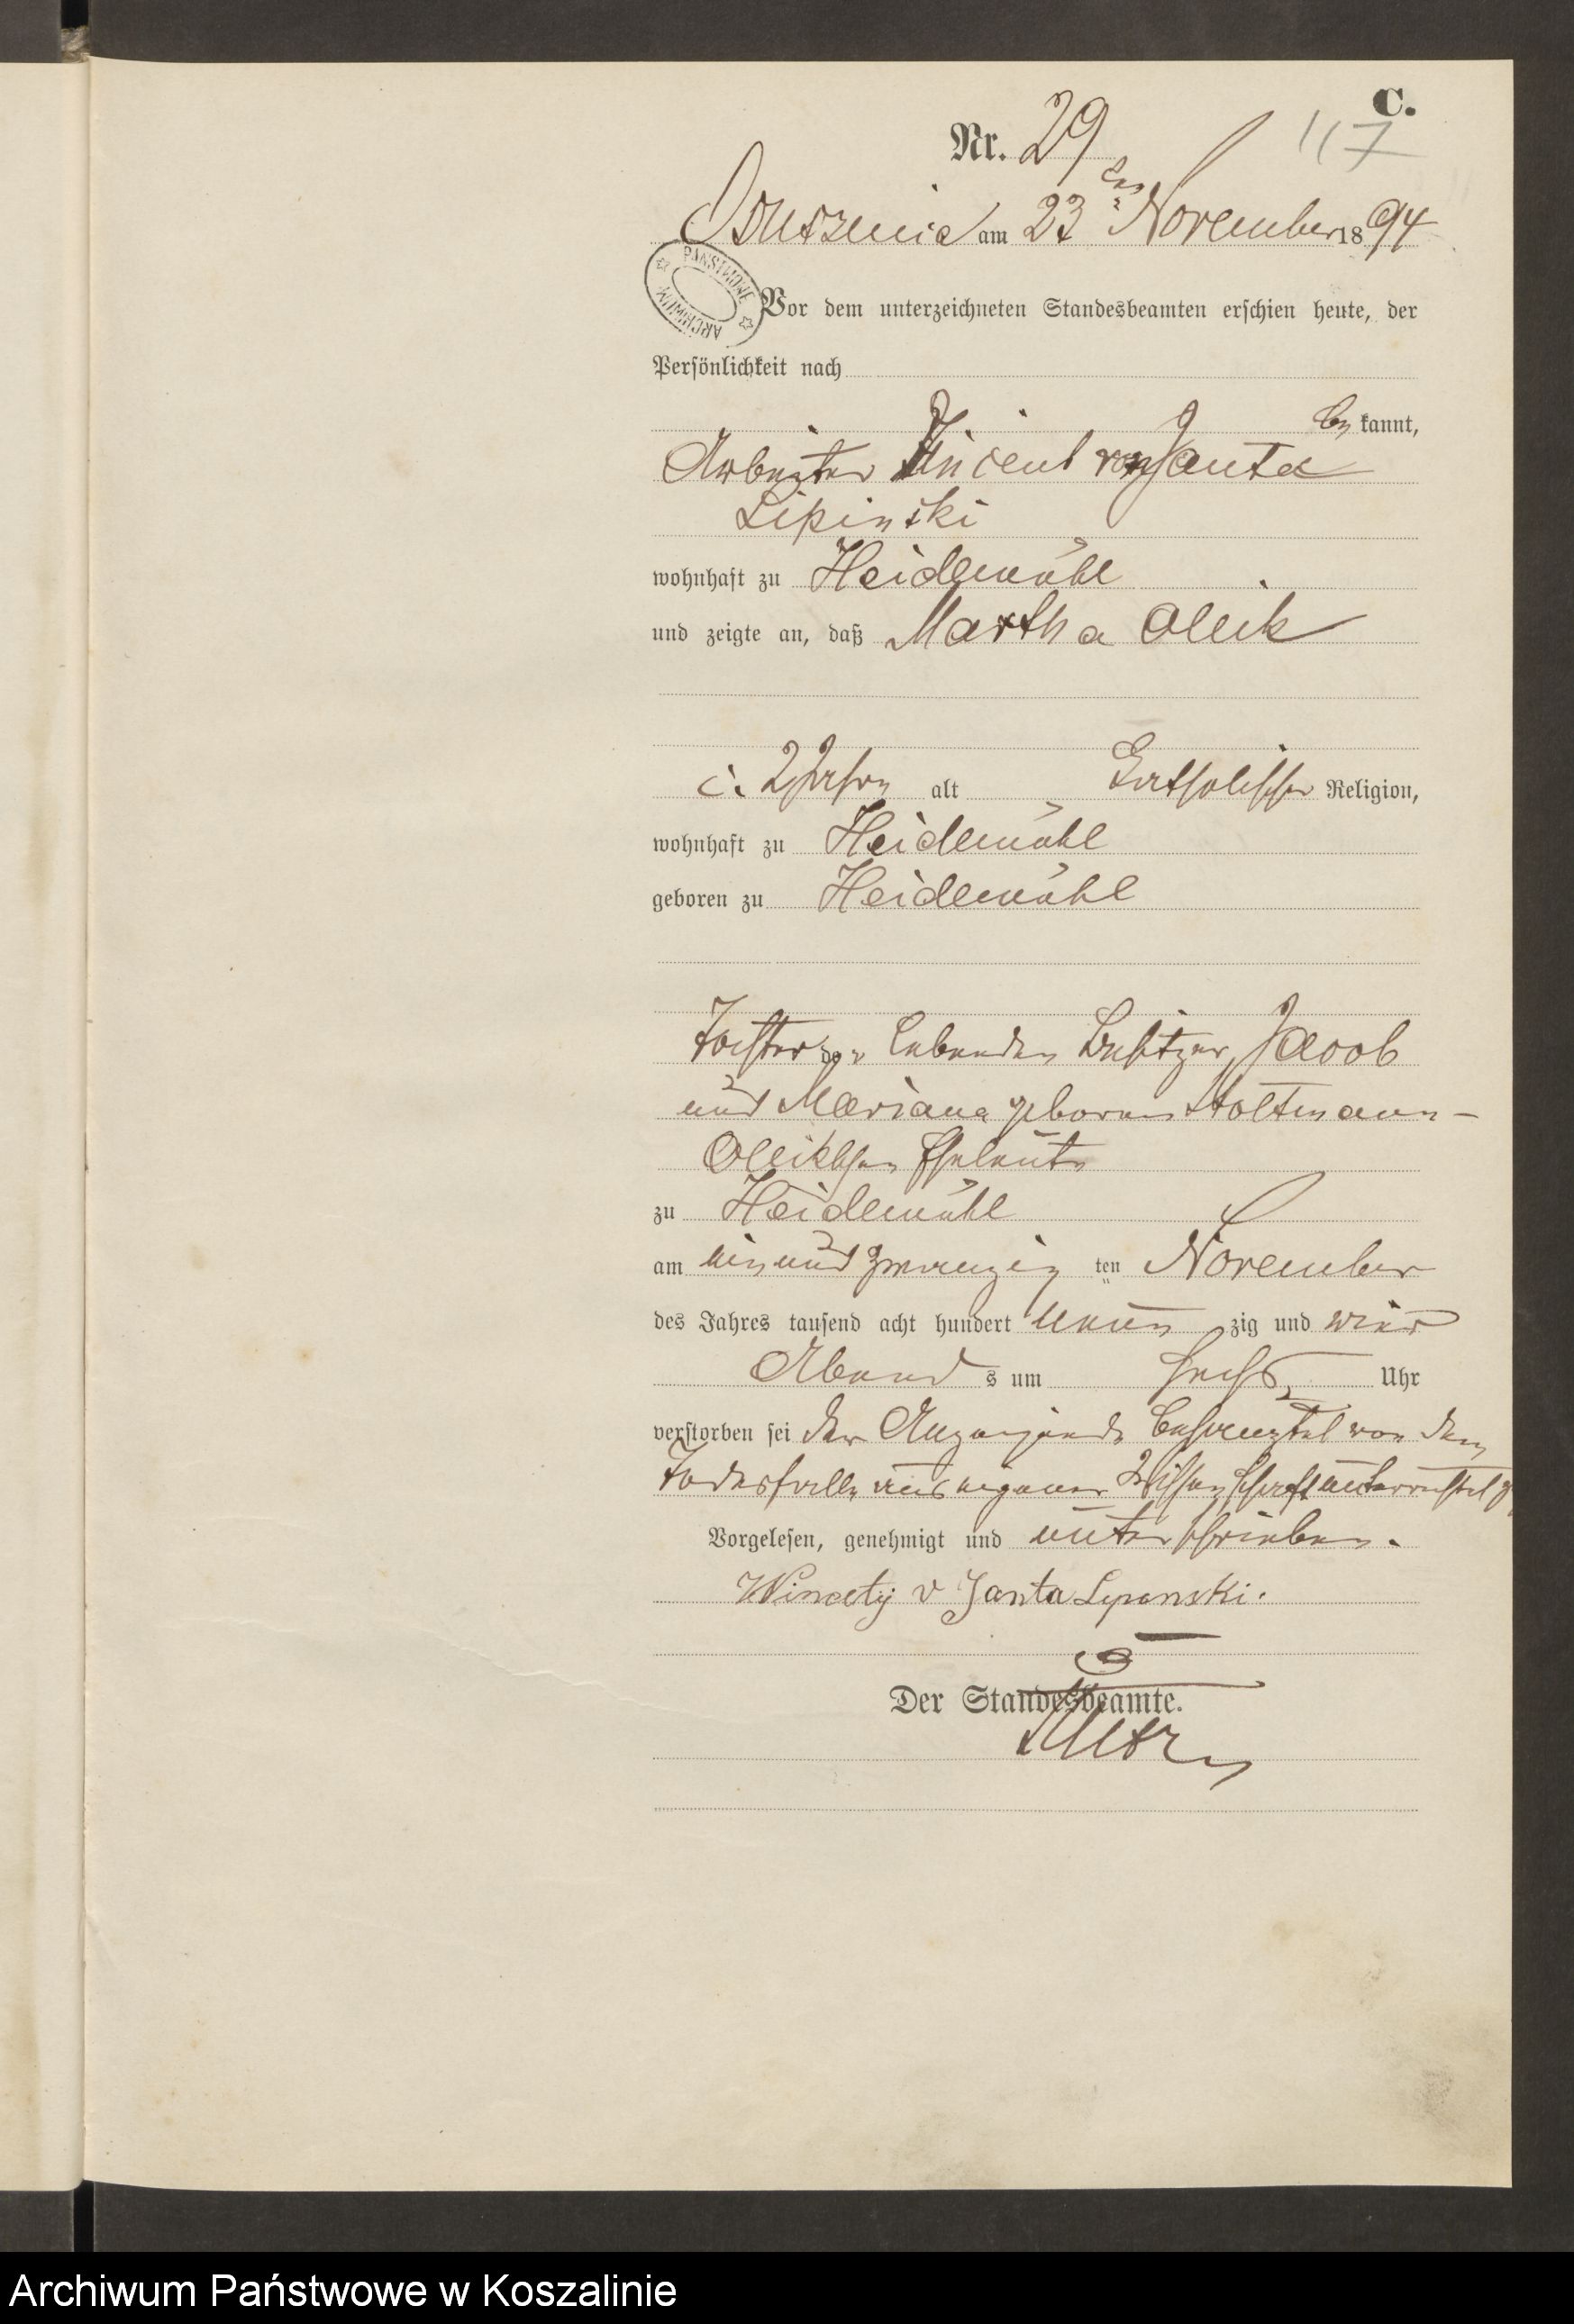 C.
Nr. 29
117
Osuszenica am 23 ten November 1894
PAŃSTWOWE ARCHIWUM
Vor dem unterzeichneten Standesbeamten erschien heute, der
Persönlichkeit nach
be kannt,
Arbeiter Vincent von Janta
Lipinski
wohnhaft zu Heidemühl
und zeigte an, daß Martha Oleik
c. 2 Jahre alt katholischer Religion,
wohnhaft zu Heidemühl
geboren zu Heidemühl
Tochter der lebenden Besitzer Jacob
und Mariana geboren Stoltmann-
Oleikschen Eheleute
zu Heidemühl
am ein und zwanzig ten November
des Jahres tausend acht hundert neun zig und vier
Abend s um sechs Uhr
verstorben sei der Anzeigende von dem
Todesfalle aus eigener Wissenschaft unterrichtet
Vorgelesen, genehmigt und unterschrieben.
Wincety v Janta Lipinski.
Der Standesbeamte.
Archiwum Państwowe w Koszalinie